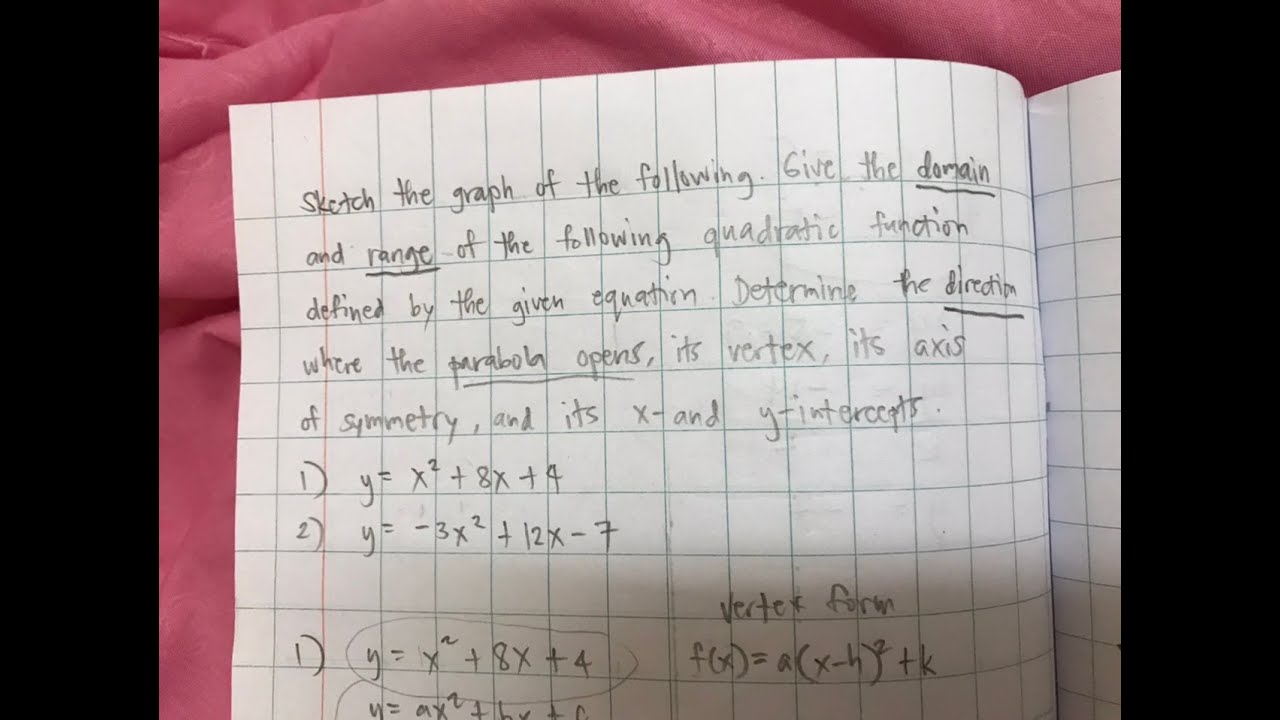 Sketch the graph of the following. Give the domain
and range of the following quadratic function
defined by the given equation. Determine the direction
where the parabola opens, its vertex, its axis
of symmetry, and its x- and y-intercepts.
1) y = x² + 8x + 4
2) y = -3x² + 12x - 7
vertex form
1) y = x² + 8x + 4 f(x) = a(x-h)² + k
y = ax² + bx + c